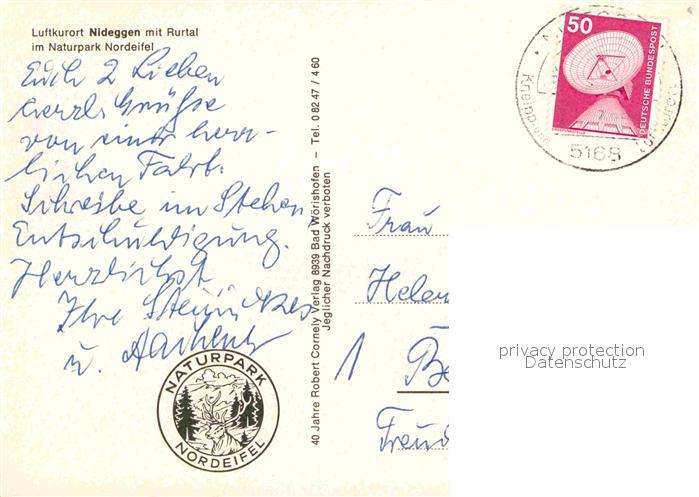 Luftkurort Nideggen mit Rurtal
im Naturpark Nordeifel
Euch 2 Lieben
herzl. Grüße
von einer herr-
lichen Fahrt.
Schreibe im Stehen,
Entschuldigung.
Herzlichst
Ihre
u.
NATURPARK
NORDEIFEL
40 Jahre Robert Cornely Verlag 8939 Bad Wörishofen – Tel. 0 82 47 / 4 60
Jeglicher Nachdruck verboten
50
DEUTSCHE BUNDESPOST
Kneipp-
5168
Frau
Helen
1 Be
Freud
privacy protection
Datenschutz